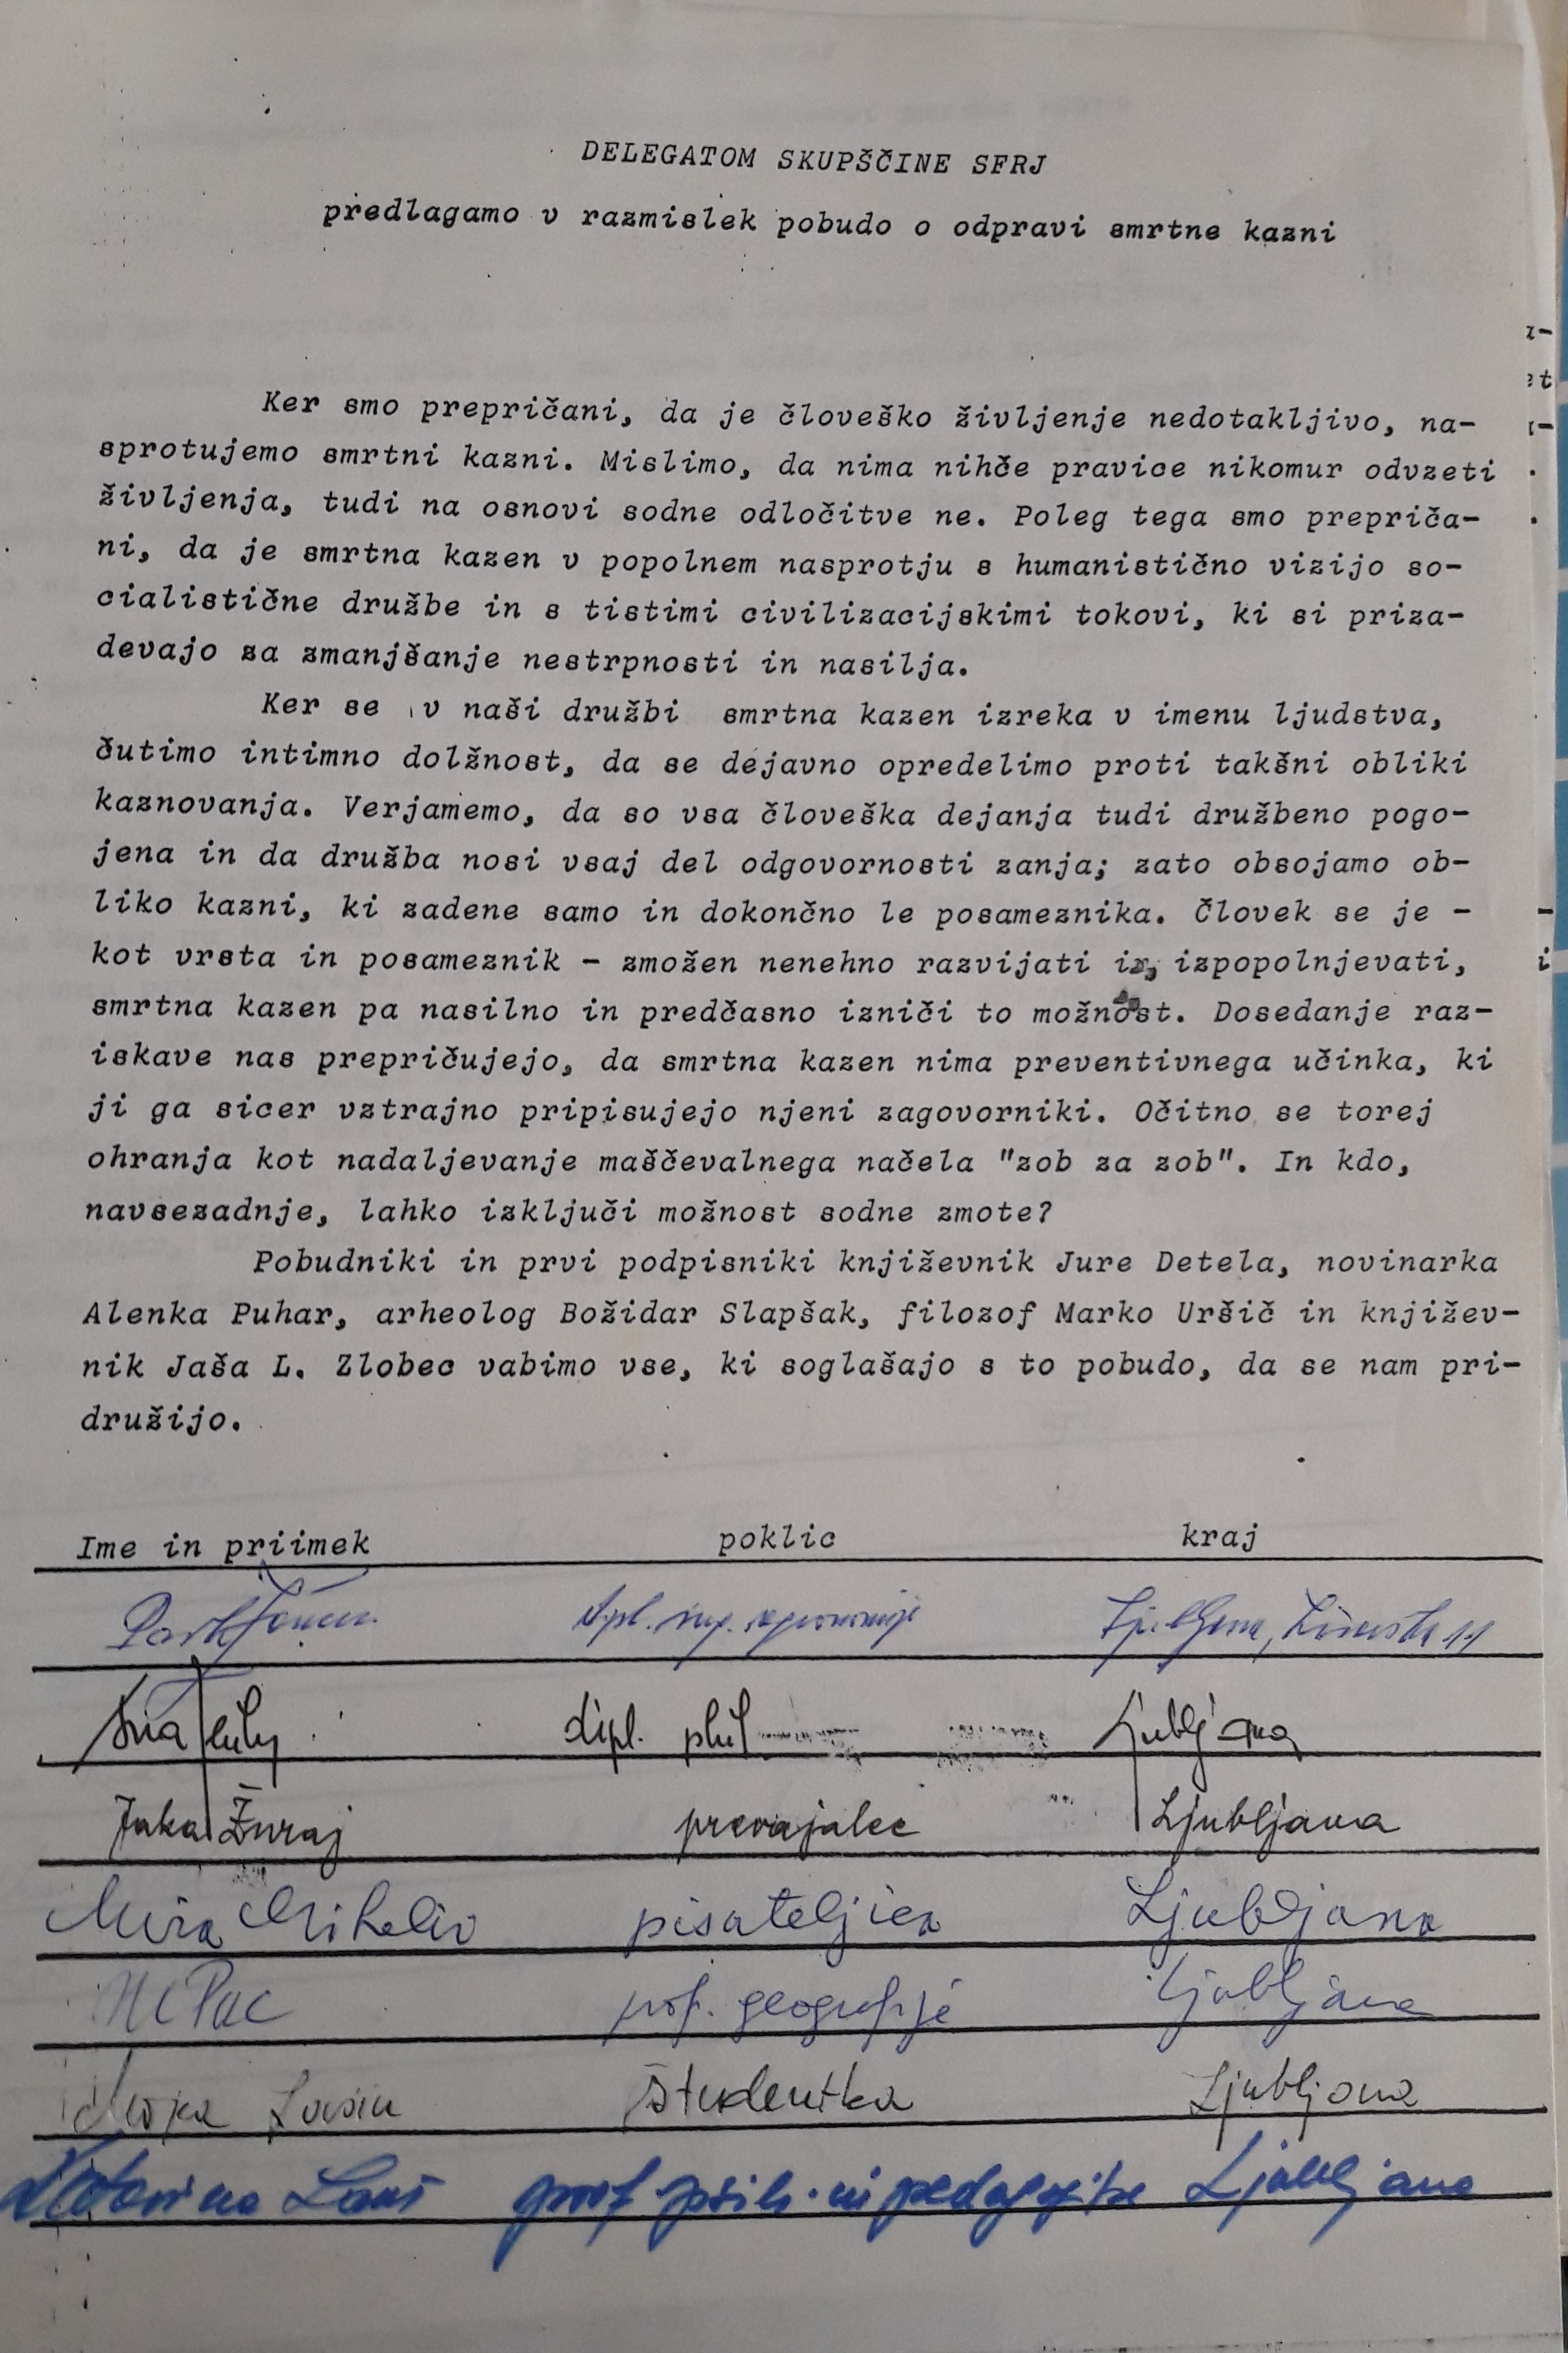 DELEGATOM SKUPŠČINE SFRJ
predlagamo v razmislek pobudo o odpravi smrtne kazni
Ker smo prepričani, da je človeško življenje nedotakljivo, na-
sprotujemo smrtni kazni. Mislimo, da nima nihče pravice nikomur odvzeti
življenja, tudi na osnovi sodne odločitve ne. Poleg tega smo prepriča-
ni, da je smrtna kazen v popolnem nasprotju s humanistično vizijo so-
cialistične družbe in s tistimi civilizacijskimi tokovi, ki si priza-
devajo za zmanjšanje nestrpnosti in nasilja.
Ker se v naši družbi smrtna kazen izreka v imenu ljudstva,
čutimo intimno dolžnost, da se dejavno opredelimo proti takšni obliki
kaznovanja. Verjamemo, da so vsa človeška dejanja tudi družbeno pogo-
jena in da družba nosi vsaj del odgovornosti zanja; zato obsojamo ob-
liko kazni, ki zadene samo in dokončno le posameznika. Človek se je -
kot vrsta in posameznik - zmožen nenehno razvijati izpopolnjevati,
smrtna kazen pa nasilno in predčasno izniči to možnost. Dosedanje raz-
iskave nas prepričujejo, da smrtna kazen nima preventivnega učinka, ki
ji ga sicer vztrajno pripisujejo njeni zagovorniki. Očitno se torej
ohranja kot nadaljevanje maščevalnega načela "zob za zob". In kdo,
navsezadnje, lahko izključi možnost sodne zmote?
Pobudniki in prvi podpisniki književnik Jure Detela, novinarka
Alenka Puhar, arheolog Božidar Slapšak, filozof Marko Uršič in književ-
nik Jaša L. Zlobec vabimo vse, ki soglašajo s to pobudo, da se nam pri-
družijo.
Ime in priimek poklic kraj
dipl. ing. agronomije Ljubljana, 11
dipl. phil Ljubljana
Jaka Žuraj prevajalec Ljubljana
Mira Mihelič pisateljica Ljubljana
prof. geografije Ljubljana
študentka Ljubljana
prof. psih. in pedagogike Ljubljana